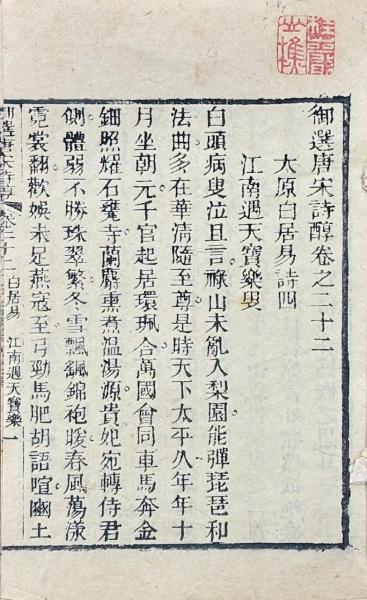 御選唐宋詩醇卷之二十二
太原白居易詩四
江南遇天寶樂叟
白頭病叟泣且言祿山未亂入梨園能彈琵琶和
法曲多在華清隨至尊是時天下太平久年年十
月坐朝元千官起居環珮合萬國會同車馬奔金
鈿照耀石甕寺蘭麝熏煮溫湯源貴妃宛轉侍君
側體弱不勝珠翠繁冬雪飄颻錦袍暖春風蕩漾
霓裳翻歡娛未足燕寇至弓勁馬肥胡語喧豳土
御選唐宋詩醇 卷二十二 白居易 江南遇天寶樂 一